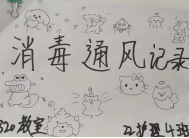 消毒通风记录
320教室
22护理山班